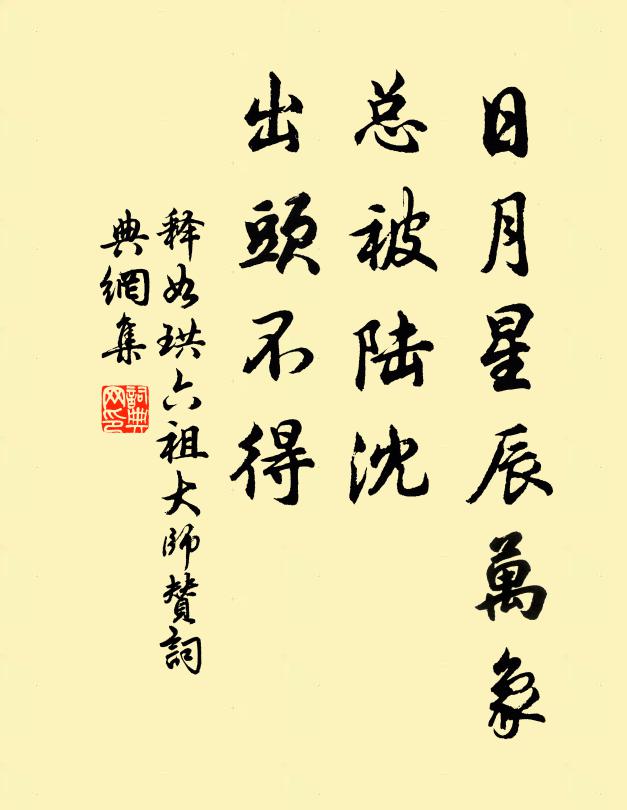 日月星辰萬象
总被陆沈
出頭不得
释如珙六祖大師贊詞
典網集
詞典
网印